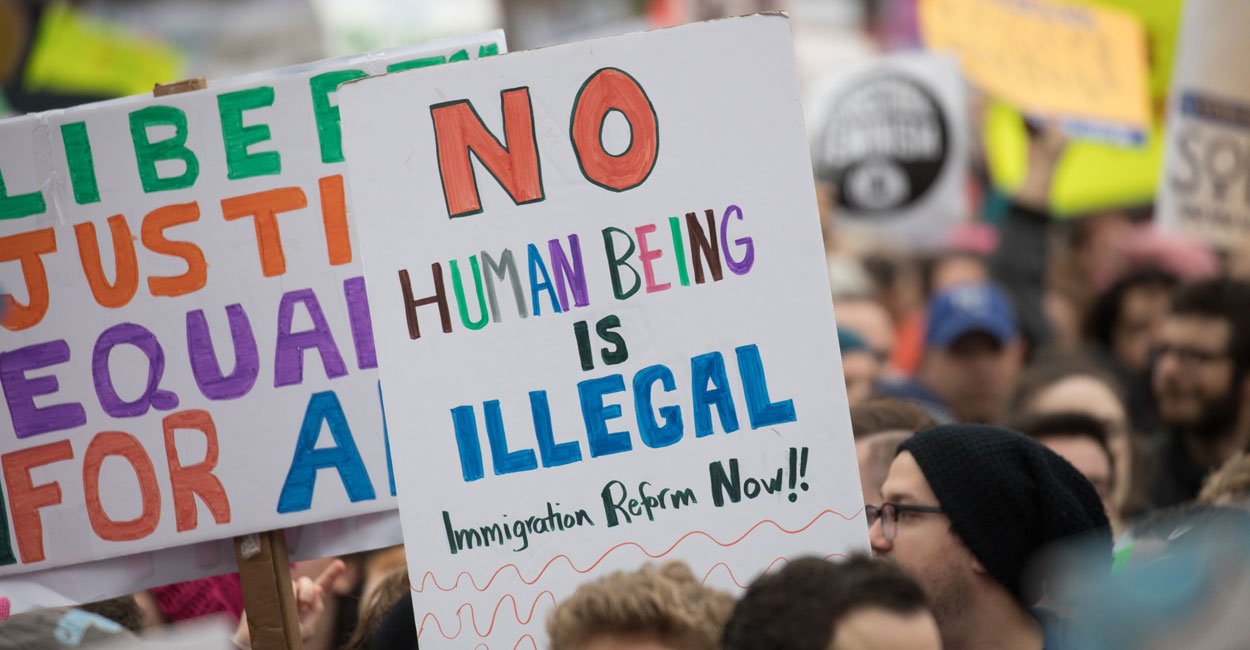 LIBER
JUSTI
EQUAL
FOR AL
NO
HUMAN BEING
IS
ILLEGAL
Immigration Reform Now!!
FEMINISM